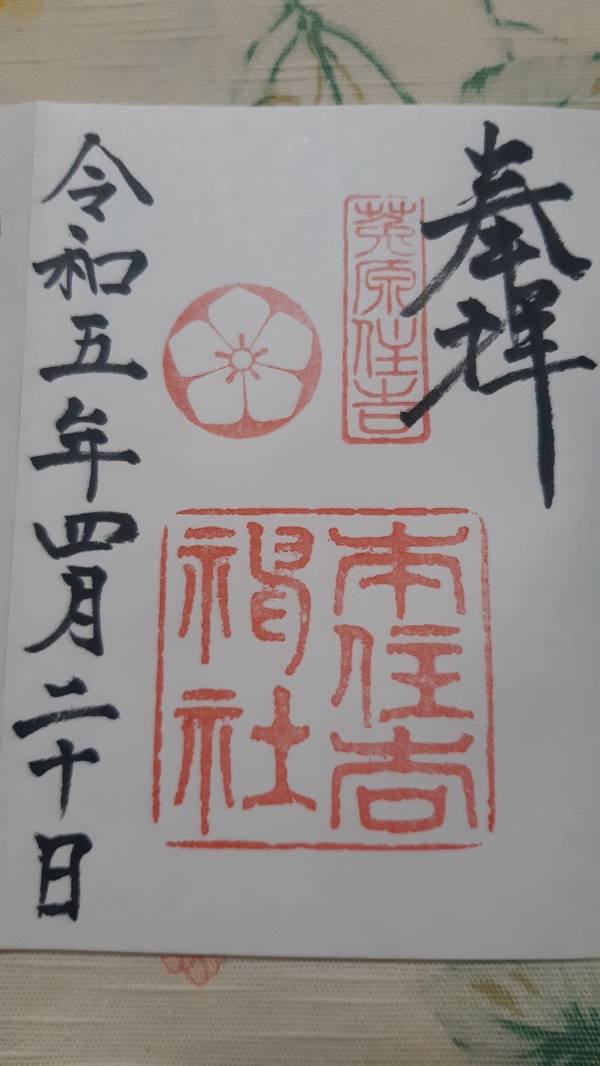 奉拝
莵原住吉
本住吉
神社
令和五年四月二十日